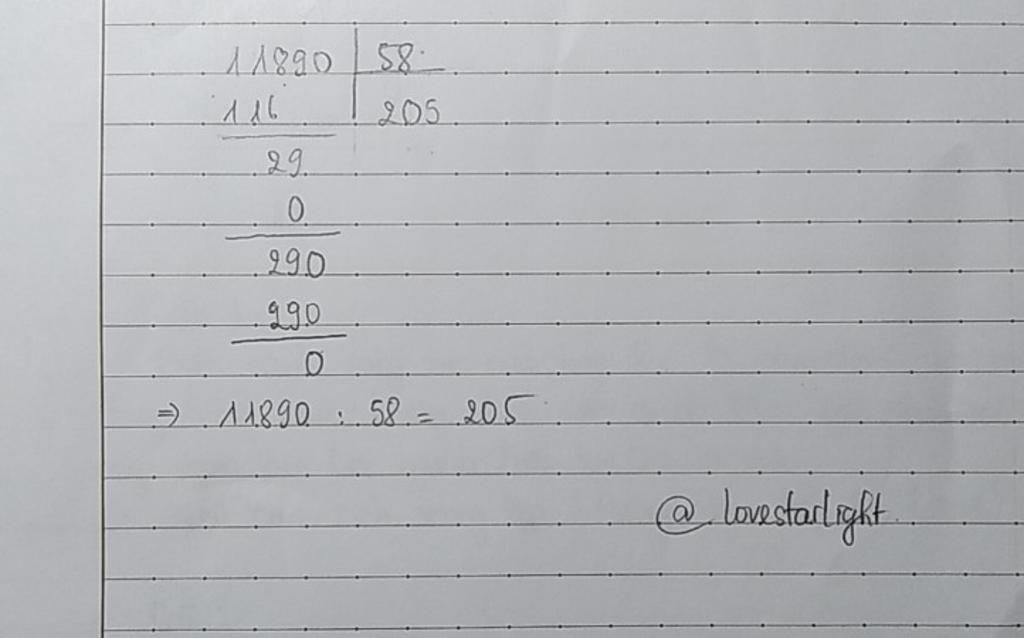 11890 | 58
116 | 205
29
0
290
290
0
⇒ 11890 : 58 = 205
@ lovestarlight